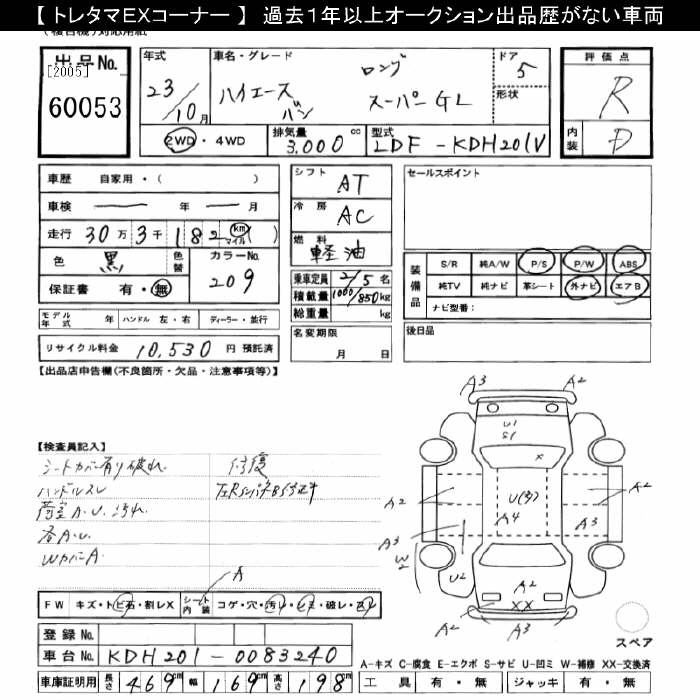 【 トレタマEXコーナー 】 過去1年以上オークション出品歴がない車両
出品No.
[2005]
60053
年式
23/10月
車名・グレード
ハイエース バン
ロング
スーパーGL
ドア
5
形状
評価点
R
内装
D
2WD ・ 4WD
排気量 3,000 cc
型式 LDF - KDH201V
車歴 自家用・( )
車検 ― 年 ― 月
走行 30万3千182 km マイル ( )
色 黒
色替
カラーNo.
209
保証書 有・無
モデル年式 年 ハンドル 左・右 ディーラー・並行
リサイクル料金 10,530 円 預託済
シフト AT
冷房 AC
燃料 軽油
乗車定員 2/5 名
積載量 1000/850 kg
総重量 kg
名変期限
月 日
セールスポイント
装備品
S/R 純A/W P/S P/W ABS
純TV 純ナビ 革シート 外ナビ エアB
ナビ型番：
後日品
【出品店申告欄(不良箇所・欠品・注意事項等)】
【検査員記入】
シートカバー有り破れ
ハンドルスレ
荷室A.U.汚れ
各A.U
WカバーA
修復
A3
A2
U1
S1
X
A2
U(3)
A4
A2
A3
A3
W2
U2
A2
XX
A2
A3
スペア
A
FW キズ・トビ石・割レX
シート内装 コゲ・穴・汚レ・シミ・破レ・スレ
登録No.
車台No. KDH201-0083240
車庫証明用 長さ 469cm 幅 169cm 高さ 198cm
A-キズ C-腐食 E-エクボ S-サビ U-凹ミ W-補修 XX-交換済
工具 有・無 ジャッキ 有・無